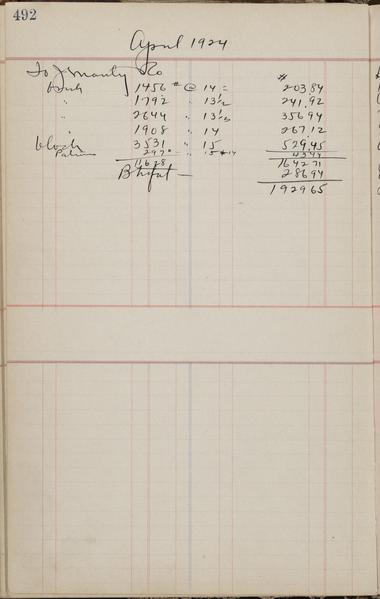 492
April 1924
To J Co
1456 # @ 14 = $ 203.84
" 1792 " 13½ 241.92
" 2644 " 13½ 356.94
" 1908 " 14 267.12
block 3531 " 15 529.45
297 # " 15
11628 1642 71
B 286 94
1929 65